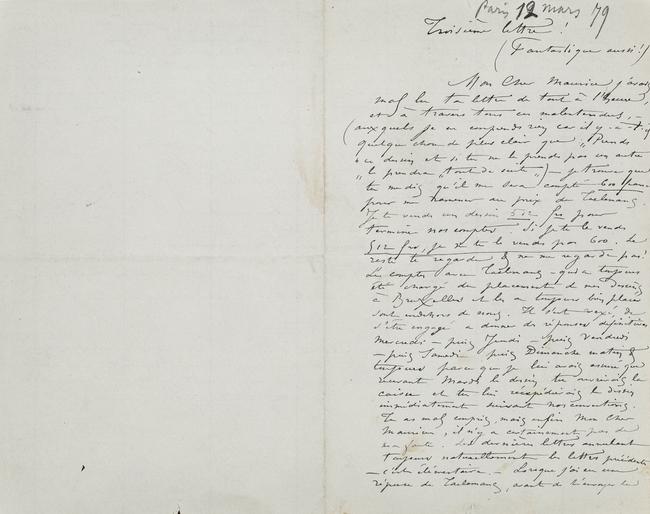 Paris 12 mars 79
Troisième lettre !
(Fantastique aussi !)
Mon Cher Maurice j'avais
mal lu ta lettre de tout à l'heure,
et à travers tous ces malentendus, —
(auxquels je ne comprends rien car il y a-t-il
quelque chose de plus clair que "Prends
"ce dessin et si tu ne le prends pas un autre
"le prendra tout de suite") — je trouve que
tu me dis qu'il me sera compté 600 francs
pour me ramener au prix de
Je te vends un dessin 512 frs pour
terminer nos comptes. Si je te le vends
512 frs, je ne te le vends pas 600. Le
reste te regarde & ne me regarde pas !
Les comptes avec — qui a toujours
été chargé du placement de mes dessins
à Bruxelles et les a toujours bien placés
sont en dehors de nous. Il s'est vexé, de
s'être engagé à donner des réponses définitives
Mercredi — puis Jeudi — puis Vendredi
— puis Samedi puis Dimanche matin &
toujours parce que je lui avais assuré que
recevant Mardi le dessin tu ouvrirais la
caisse et tu lui réexpédierais le dessin
immédiatement suivant nos conventions.
Tu as mal compris, mais enfin Mon Cher
Maurice, il n'y a certainement pas de
ma faute. Les dernières lettres annulant
toujours naturellement les lettres précédentes
— c'est élémentaire. — Lorsque j'ai eu une
réponse de avant de t'envoyer le